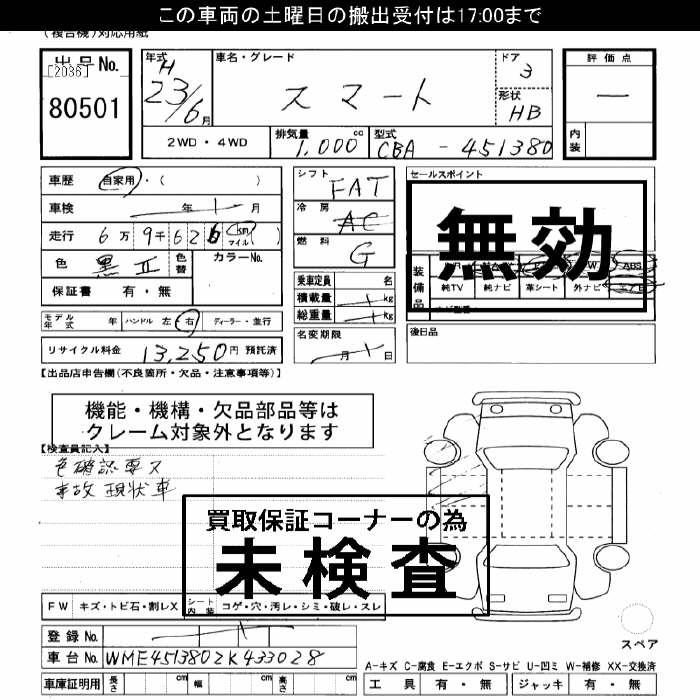 この車両の土曜日の搬出受付は17:00まで
(複合機)対応用紙
出品No.
[2036]
80501
年式
H
23/6月
車名・グレード
スマート
ドア
3
形状
HB
評価点
一
内装
2WD・4WD
排気量
1,000 cc
型式
CBA - 451380
車歴 自家用・( )
車検 年 月
走行 6万9千626 km マイル( )
色 黒 II 色替 カラーNo.
保証書 有・無
モデル年式 年 ハンドル 左 右 ディーラー・並行
リサイクル料金 13,250円 預託済
シフト FAT
冷房 AC
燃料 G
乗車定員 名
積載量 kg
総重量 kg
名変期限
月 日
セールスポイント
無効
装備品
ABS
純TV 純ナビ 革シート 外ナビ
後日品
【出品店申告欄(不良箇所・欠品・注意事項等)】
機能・機構・欠品部品等は
クレーム対象外となります
【検査員記入】
色確認要ス
事故 現状車
買取保証コーナーの為
未検査
FW キズ・トビ石・割レX シート内装 コゲ・穴・汚レ・シミ・破レ・スレ
登録No.
車台No. WME4513802K433028
車庫証明用 長さ cm 幅 cm 高さ cm
スペア
A-キズ C-腐食 E-エクボ S-サビ U-凹ミ W-補修 XX-交換済
工具 有・無 ジャッキ 有・無